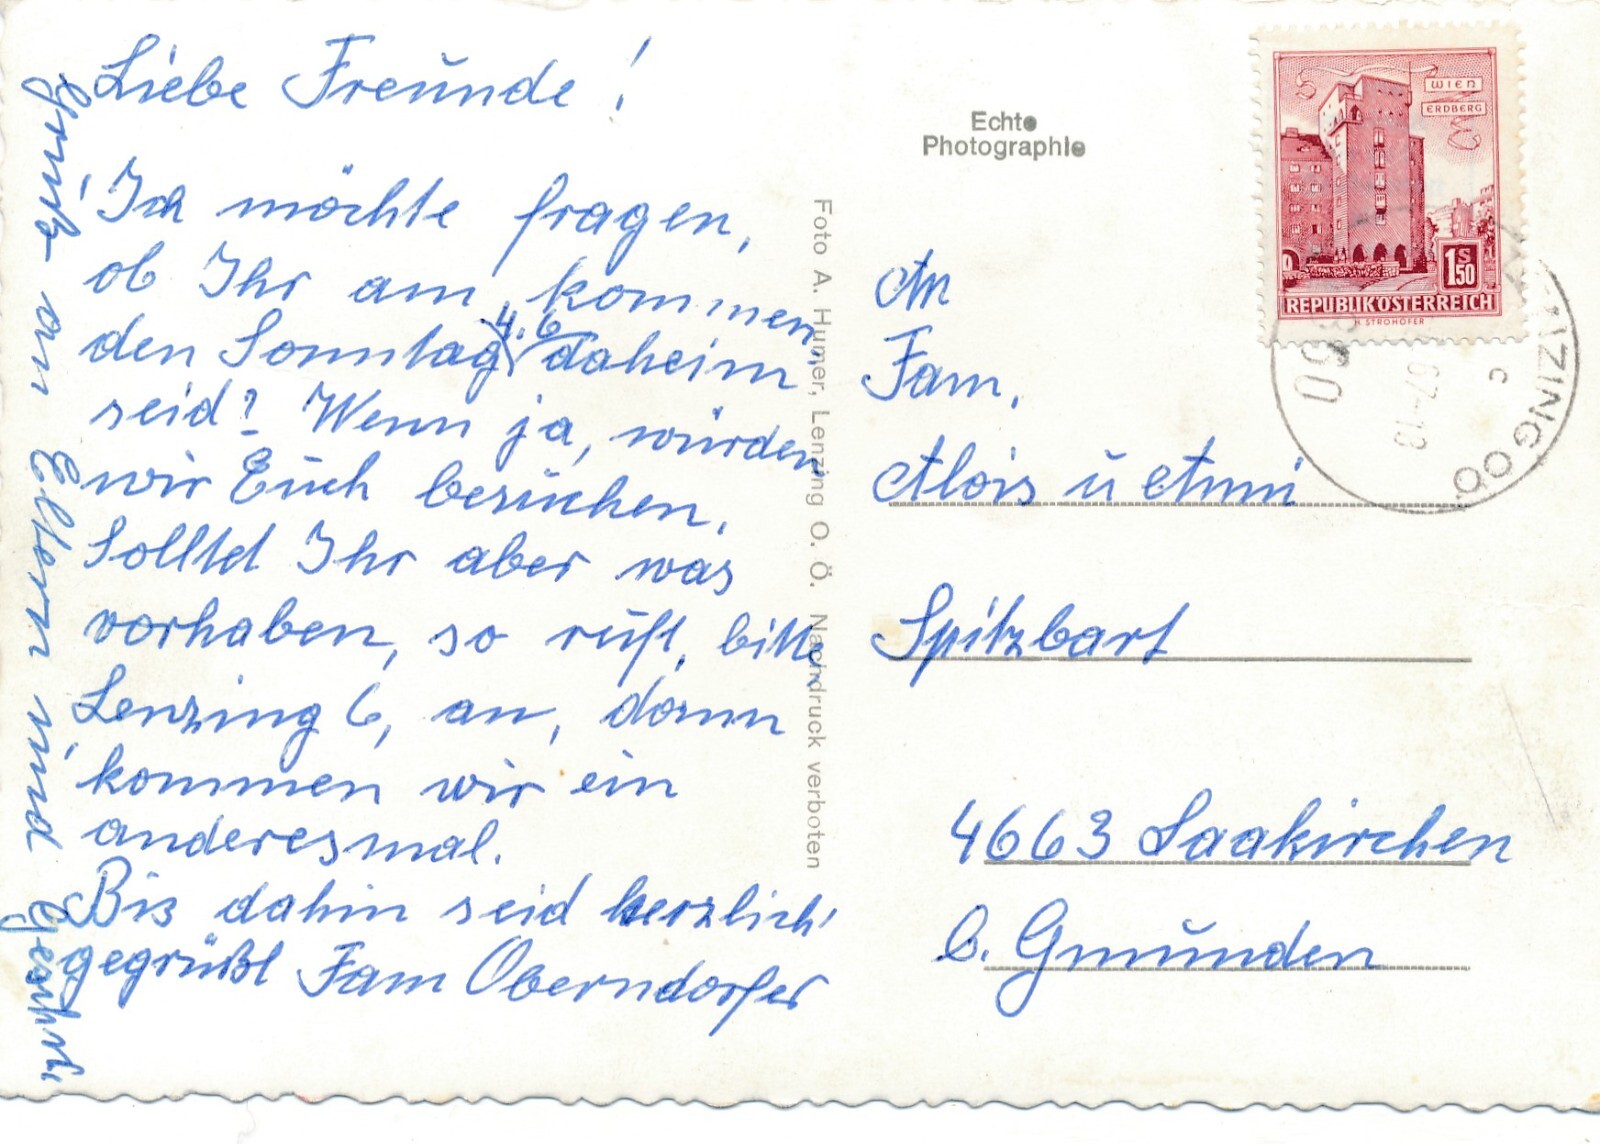 Liebe Freunde!
Ich möchte fragen,
ob Ihr am kommen
den Sonntag 4.6 daheim
seid? Wenn ja, würden
wir Euch besuchen.
Solltet Ihr aber was
vorhaben, so ruft, bitte,
Lenzing 6, an, dann
kommen wir ein
anderesmal.
Bis dahin seid herzlich
gegrüßt Fam Oberndorfer
Grüße an Eltern und
Foto A. Humer, Lenzing O. Ö. Nachdruck verboten
Echte
Photographie
WIEN
ERDBERG
1S50
REPUBLIK ÖSTERREICH
H. STROHOFER
67-18
c
ZING OÖ
An
Fam.
Alois u Anni
Spitzbart
4663 Laakirchen
b. Gmunden